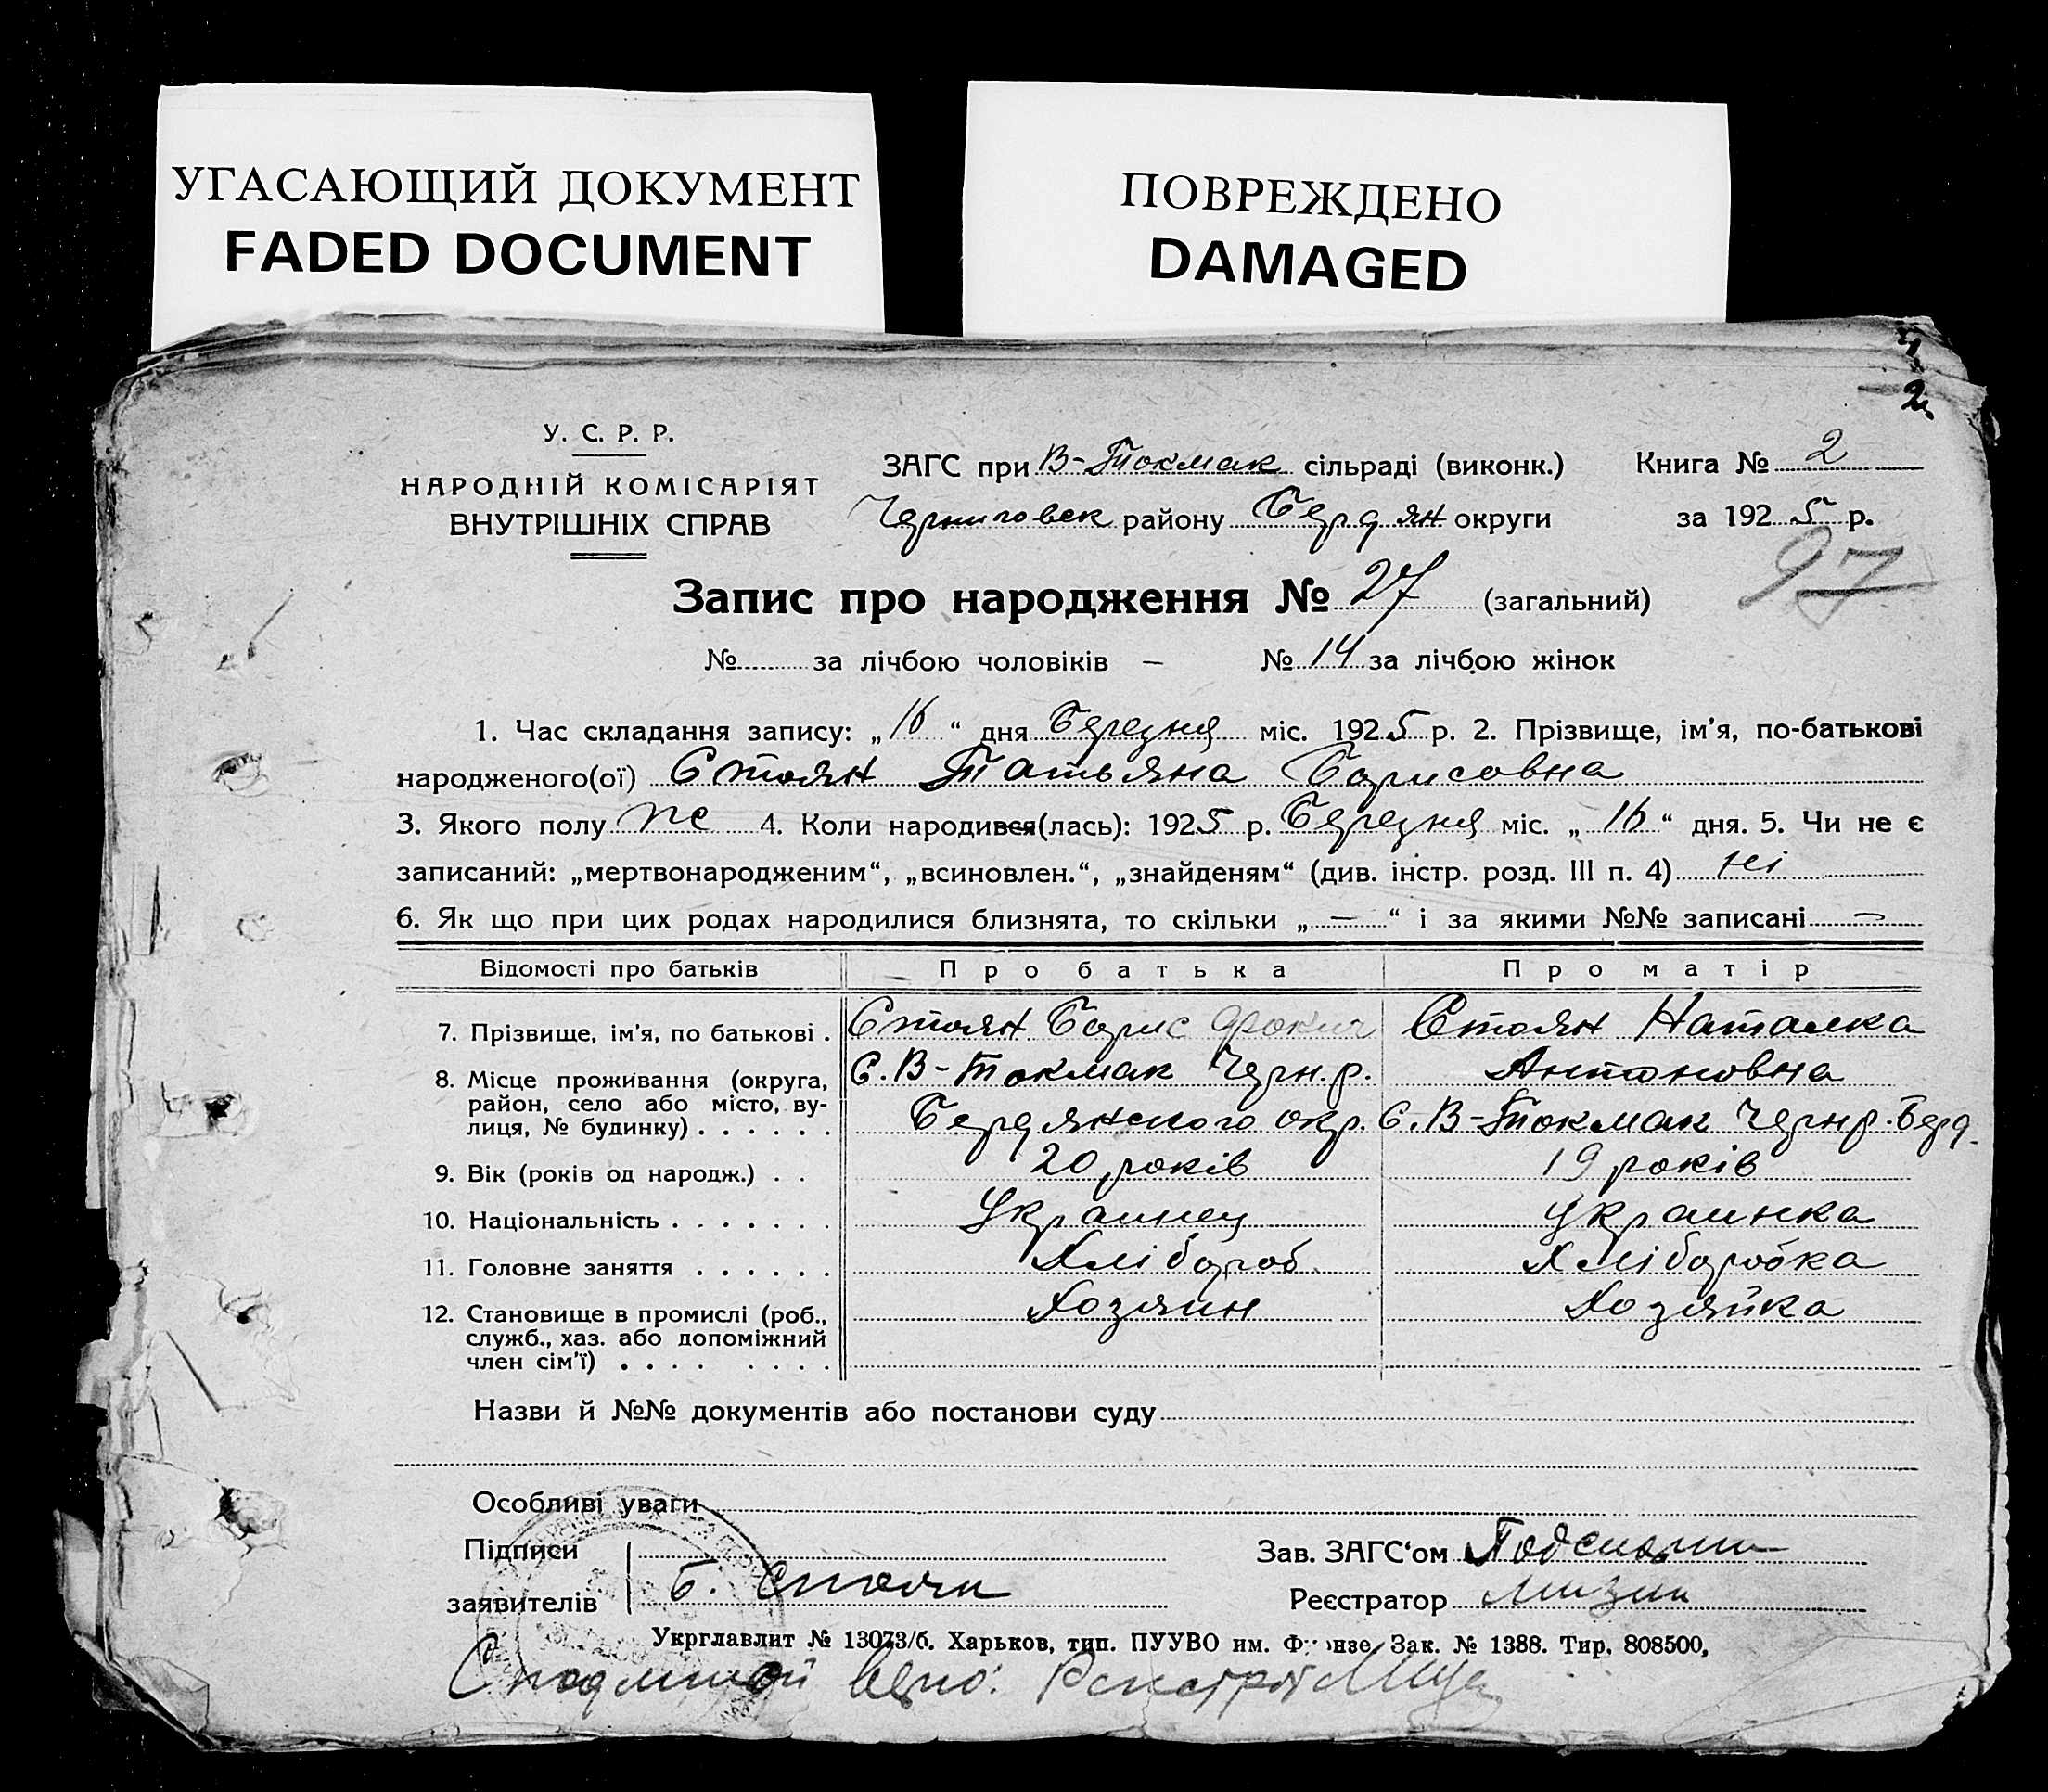 УГАСАЮЩИЙ ДОКУМЕНТ
FADED DOCUMENT
ПОВРЕЖДЕНО
DAMAGED
2
У. С. Р. Р.
НАРОДНІЙ КОМІСАРІЯТ
ВНУТРІШНІХ СПРАВ
ЗАГС при В-Токмак сільраді (виконк.) Книга № 2
Черниговск району Бердян округи за 1925 р.
97
Запис про народження № 27 (загальний)
№ за лічбою чоловіків — № 14 за лічбою жінок
1. Час складання запису: „16“ дня Березня міс. 1925 р. 2. Прізвище, ім'я, по-батькові
народженого(ої) Стоян Татьяна Борисовна
3. Якого полу же 4. Коли народився(лась): 1925 р. Березня міс. „16“ дня. 5. Чи не є
записаний: „мертвонародженим“, „всиновлен.“, „знайденям“ (див. інстр. розд. III п. 4) ні
6. Як що при цих родах народилися близнята, то скільки „—“ і за якими №№ записані —
Відомості про батьків Про батька Про матір
7. Прізвище, ім'я, по батькові . Стоян Борис Фокич Стоян Наталка
8. Місце проживання (округа, С. В-Токмак Черн. р. Антоновна
район, село або місто, ву-
лиця, № будинку) . . . . . . Бердянского окр. С. В-Токмак Черн р. Берд.
9. Вік (років од народж.) . . 20 років 19 років
10. Національність . . . . . . . Украинец Украинка
11. Головне заняття . . . . . . Хлібороб Хлібаробка
12. Становище в промислі (роб., Хозяин Хозяйка
служб., хаз. або допоміжний
член сім'ї) . . . . . . . .
Назви й №№ документів або постанови суду
Особливі уваги
Підписи Зав. ЗАГС‘ом
заявителів Б. Стоян Реєстратор Мизин
Укрглавлит № 13073/б. Харьков, тип. ПУУВО им. Фрунзе Зак. № 1388. Тир. 808500,